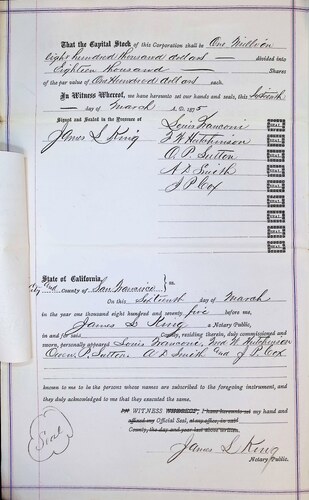 That the Capital Stock of this Corporation shall be One Million
Eight hundred thousand dollars — divided into
Eighteen thousand — Shares
of the par value of One Hundred dollars each.
In Witness Whereof, we have hereunto set our hands and seals, this Sixteenth
— day of March A.D. 1875
Signed and Sealed in the Presence of
James L King
Louis Franconi SEAL
F W Hutchinson SEAL
O. P. Sutton SEAL
A D Smith SEAL
J P Cox SEAL
SEAL
SEAL
SEAL
SEAL
SEAL
State of California,
City and County of San Francisco } ss.
On this Sixteenth day of March
in the year one thousand eight hundred and seventy five before me,
James L King a Notary Public,
in and for said County, residing therein, duly commissioned and
sworn, personally appeared Louis Franconi, Fred W Hutchinson
Owen P. Sutton A D Smith and J P Cox
known to me to be the persons whose names are subscribed to the foregoing instrument, and
they duly acknowledged to me that they executed the same.
In WITNESS WHEREOF, I have hereunto set my hand and
affixed my Official Seal, at my office, in said
County, the day and year last above written.
Seal
James L King
Notary Public.